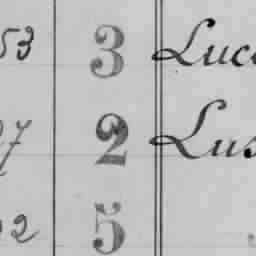 53 3 Luc
7 2 Lus
2 5